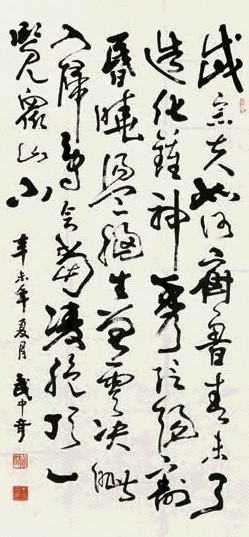 岱宗夫如何齊魯青未了
造化鍾神秀陰陽割
昏曉盪胸生曾雲決眥
入歸鳥會當凌絕頂一
覽眾山小
辛未年夏月武中奇